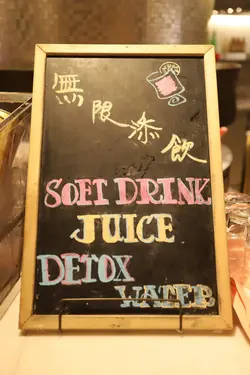 無限添飲
SOFT DRINK
JUICE
DETOX
WATER